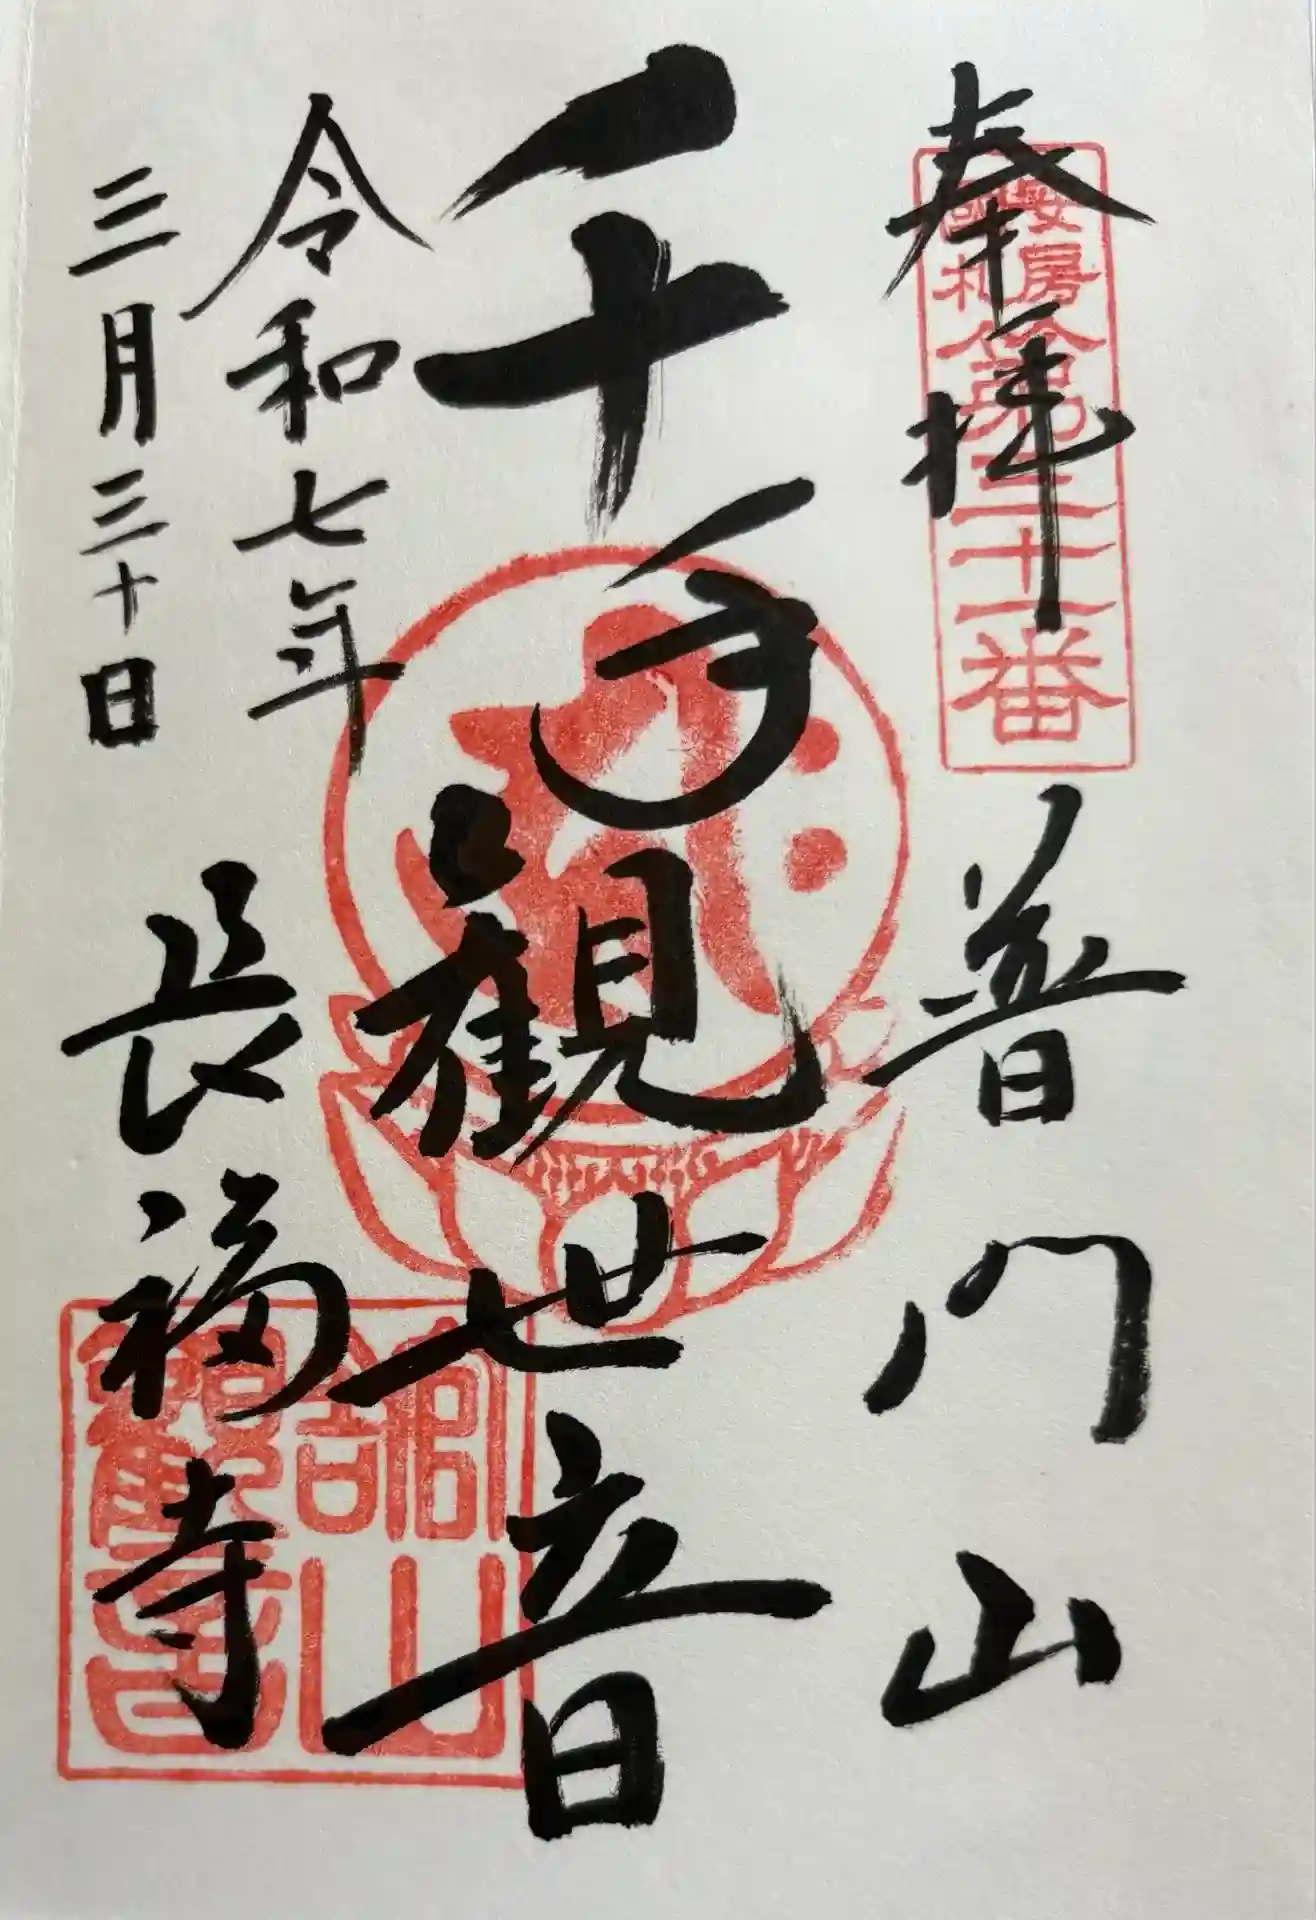 奉拝
安房
國札
第三十一番
普門山
千手観世音
令和七年
三月三十日
長福寺
館山
觀音